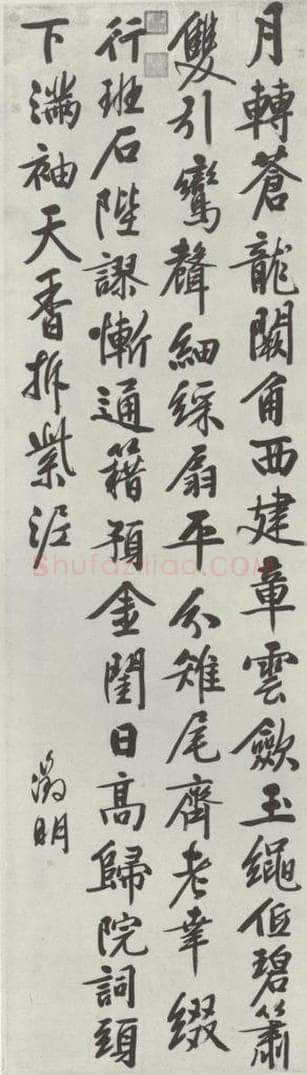 月轉蒼龍闕角西建章雲歛玉繩低碧簫
雙引鸞聲細綵扇平分雉尾齊老幸綴
行班石陛謬慚通籍預金閨日高歸院詞頭
下滿袖天香拆紫泥
徵明
Shufaziliao.COM